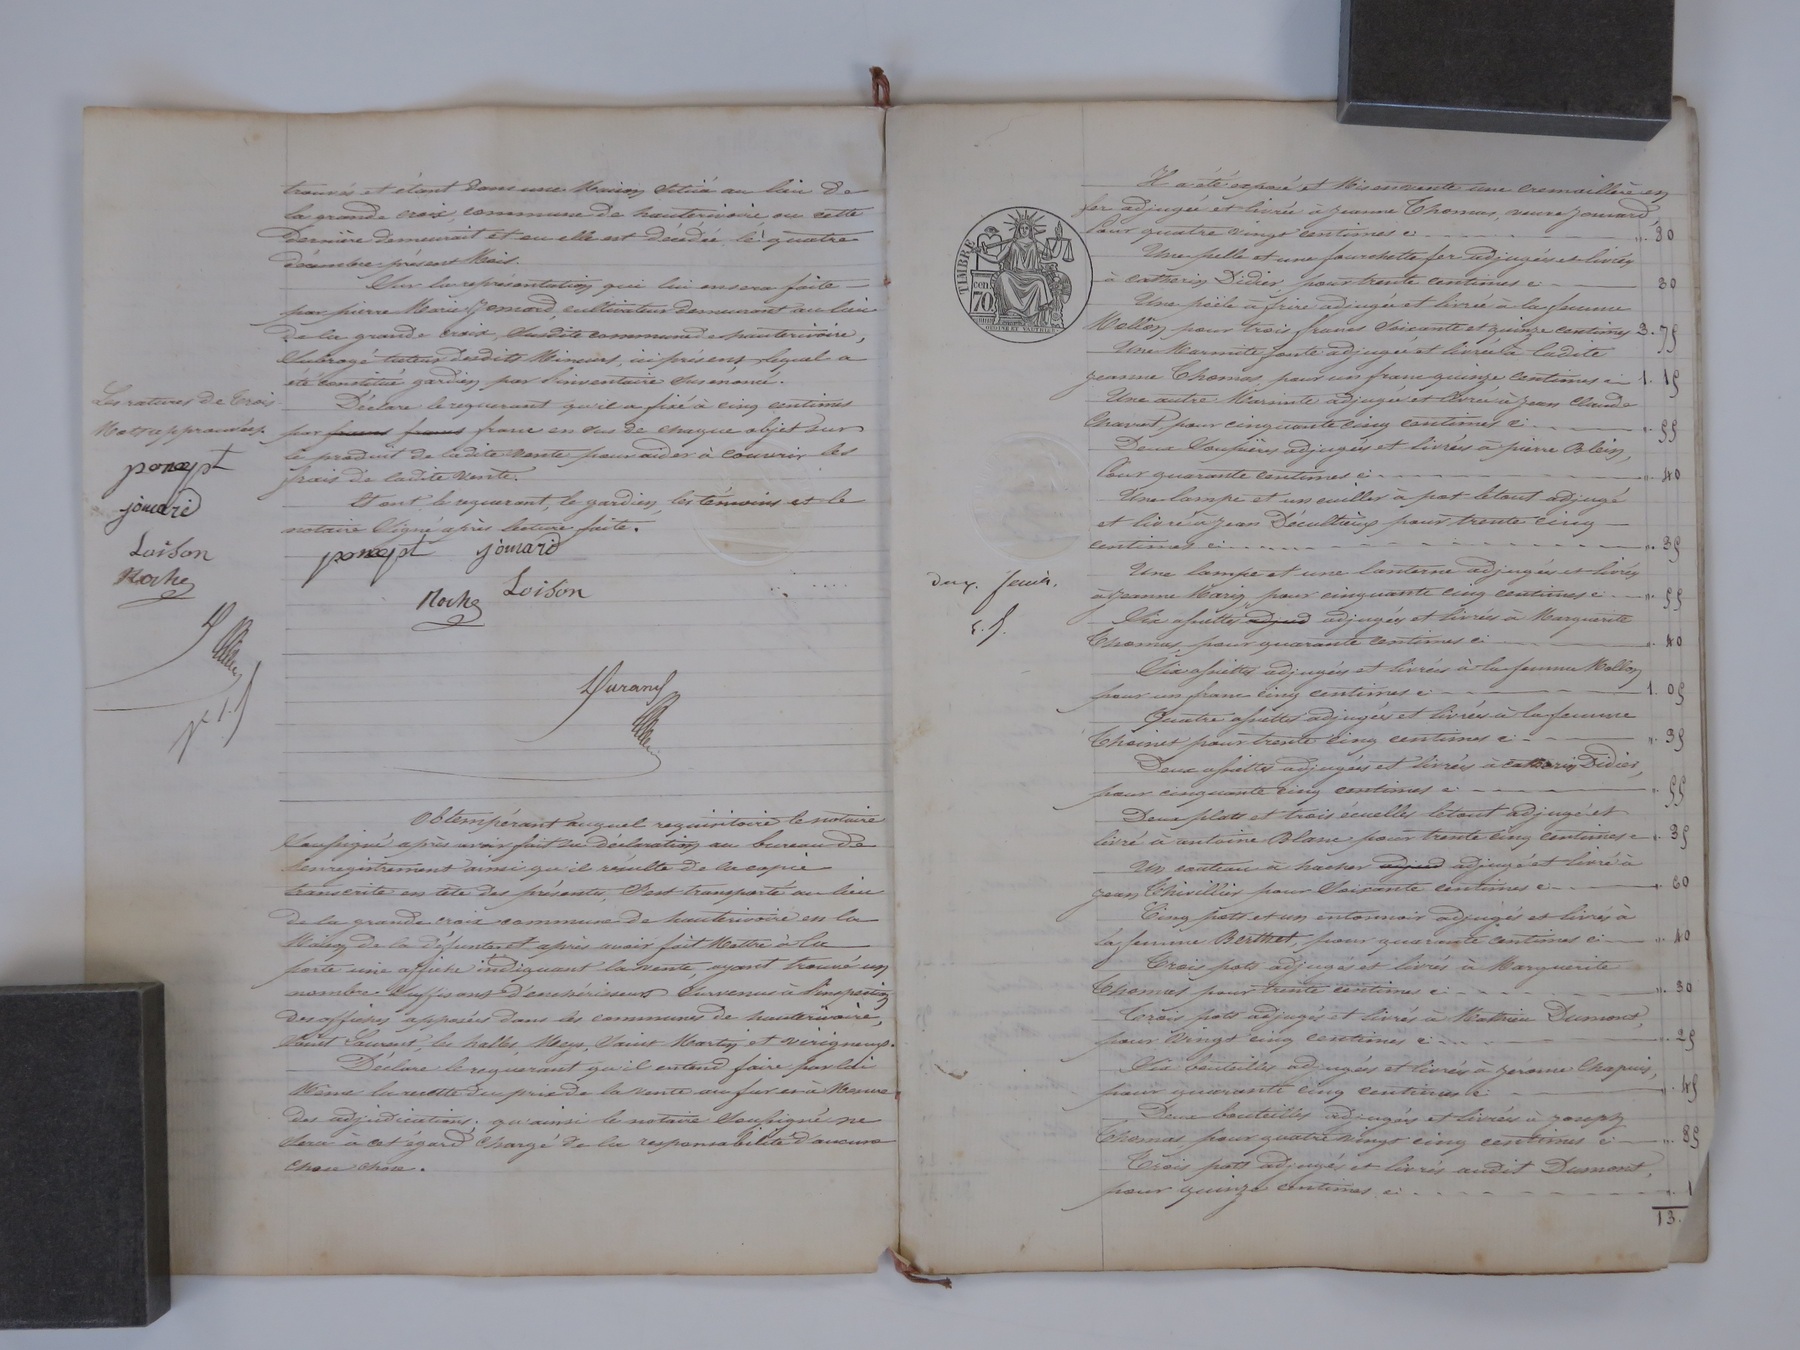 trouvés et étant dans une Maison située au lieu de
la grande croix, commune de hauterivoire ou cette
dernière demeurait et ou elle est décédée le quatre
décembre présent Mois.
Sur la représentation qui lui en sera faite
par pierre Marie Jomard, cultivateur demeurant au lieu
de la grande croix, susdite commune de hauterivoire,
Subrogé tuteur desdits Mineurs, ici présent, lequel a
été constitué gardien par l'inventaire susénoncé.
Déclare le requerant qu'il a fixé à cinq centimes
par francs francs franc en sus de chaque objet sur
le produit de ladite vente pour aider à couvrir les
frais de ladite vente.
Et ont le requerant, le gardien, les témoins et le
notaire Signé après lecture faite.
poncept jomard
Loison
Roche
Durand
Les ratures de trois
Mots approuvées.
poncept
jomard
Loison
Roche
Obtempérant auquel requisitoire le notaire
Soussigné après avoir fait sa déclaration au bureau de
l'enregistrement ainsi qu'il résulte de la copie
transcrite en tête des présentes, s'est transporté au lieu
de la grande croix commune de hauterivoire en la
Maison de la défunte et après avoir fait Mettre à la
porte une affiche indiquant la vente, ayant trouvé un
nombre suffisant d'enchérisseurs survenus à l'inspection
des affiches apposées dans les communes de hauterivoire,
Saint Laurent, les halles, Meys, Saint Martin et virigneux.
Déclare le requérant qu'il entend faire par lui
Même la recette du prix de la vente au fur et à Mesure
des adjudications. qu'ainsi le notaire Soussigné ne
sera à cet egard chargé de la responsabilité d'aucune
chose chose.
TIMBRE
cen. 70
Il a été exposé et Mis en vente une cremaillère en
fer adjugée et livrée à jeanne Thomas, veuve jomard,
Pour quatre vingt centimes ci ". 80
Une pelle et une fourchette fer adjugées et livrées
à catherin Didier pour trente centimes ci 30
Une poële à frire adjugée et livrée à la femme
Mollon pour trois francs Soixante et quinze centimes 3. 75
Une Marmite fonte adjugée et livrée à ladite
jeanne Thomas, pour un franc quinze centimes ci 1. 15
Une autre Marmite adjugée et livrée à jean claude
Chavant pour cinquante cinq centimes ci ". 55
Deux Soupières adjugées et livrées à pierre Blein,
Pour quarante centimes ci ". 40
Une lampe et un cuiller à pot le tout adjugé
et livré à jean Décultieux pour trente cinq
centimes ci ". 35
deux. feuil.
Une lampe et une lanterne adjugées et livrées
à jeanne Marie pour cinquante cinq centimes ci ". 55
Six assiettes adjud adjugées et livrées à Marguerite
Thomas, pour quarante centimes ci ". 40
Six assiettes adjugées et livrées à la femme Mollon
pour un franc cinq centimes ci 1. 05
Quatre assiettes adjugées et livrées à la femme
Choinet pour trente cinq centimes ci ". 35
Deux assiettes adjugées et livrées à catherin Didier,
pour cinquante cinq centimes ci ". 55
Deux plats et trois écuelles le tout adjugé et
livré à antoine Blanc pour trente cinq centimes c ". 35
Un couteau à hacher adjud adjugé et livré à
jean Thivillier pour Soixante centimes c ". 60
Cinq pots et un entonnoir adjugés et livrés à
la femme Berthet, pour quarante centimes ci ". 40
Trois pots adjugés et livrés à Marguerite
Thomas pour trente centimes ci ". 30
Trois pots adjugés et livrés à Mathieu Dumont,
pour vingt cinq centimes ci ". 25
Six bouteilles adjugées et livrées à jérome Chapuis,
pour quarante cinq centimes ci ". 45
Deux bouteilles adjugées et livrées à joseph
Thomas pour quatre vingt cinq centimes ci ". 85
Trois pots adjugés et livrés audit Dumont,
pour quinze centimes ci ". 1
13.